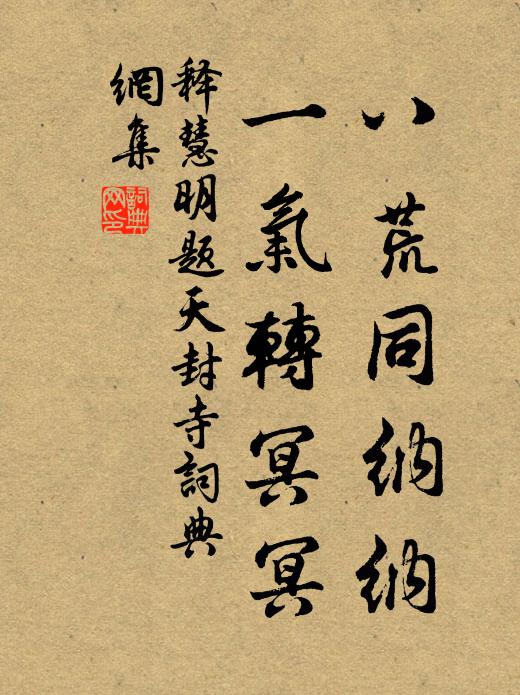 八荒同納納
一氣轉冥冥
释慧明題天封寺詞典
網集
詞典網印